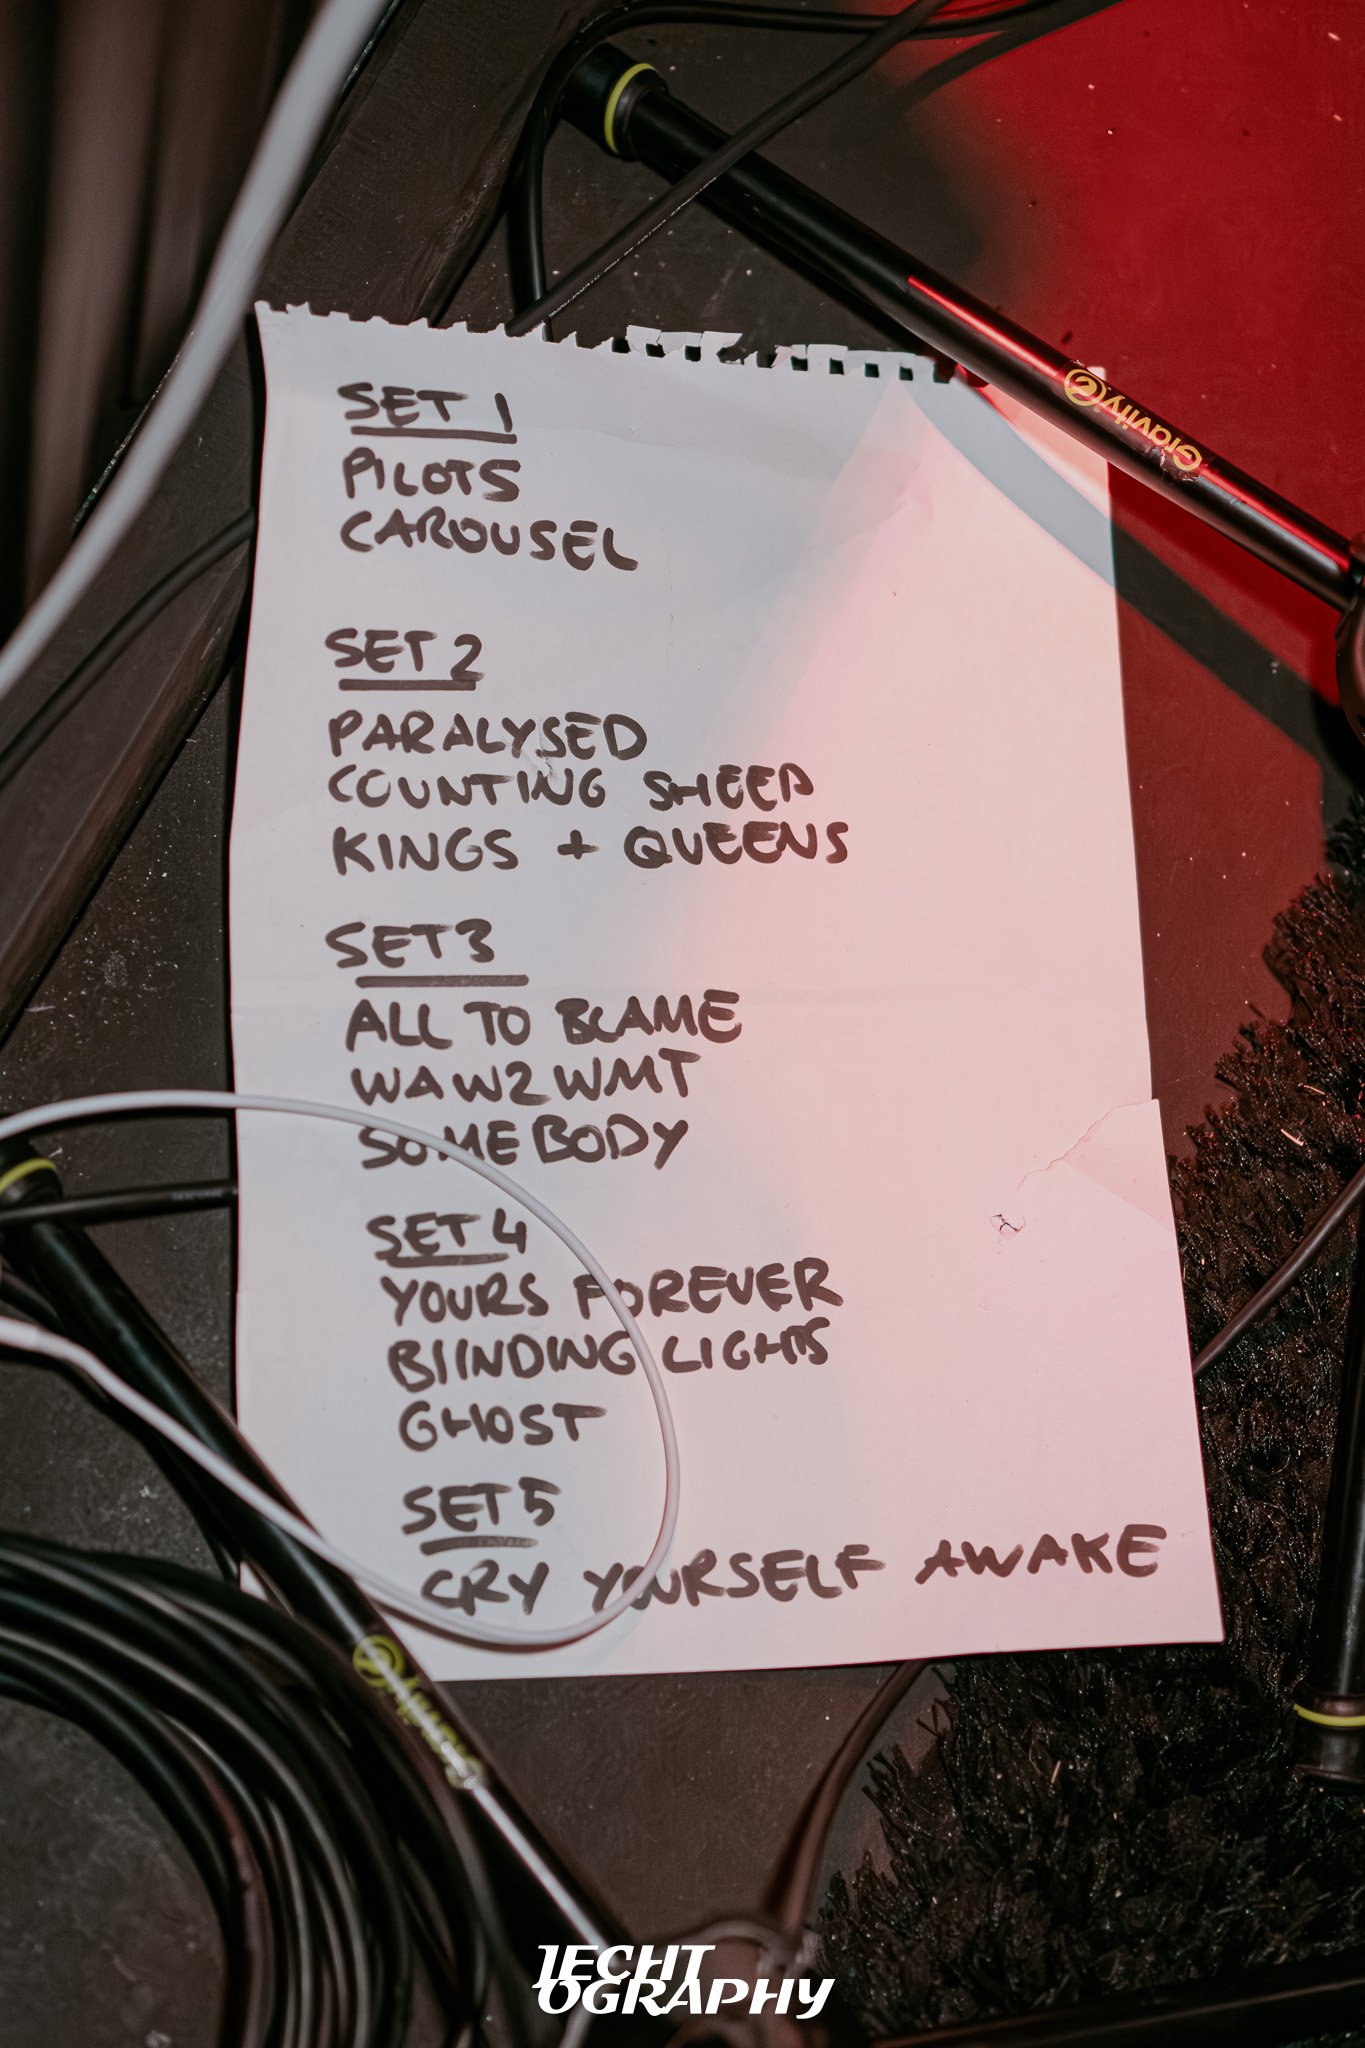 Gravity
SET 1
PILOTS
CAROUSEL
SET 2
PARALYSED
COUNTING SHEEP
KINGS + QUEENS
SET 3
ALL TO BLAME
WAW2WMT
SOMEBODY
SET 4
YOURS FOREVER
BLINDING LIGHTS
GHOST
SET 5
CRY YOURSELF AWAKE
Gravity
1ECHT
OGRAPHY